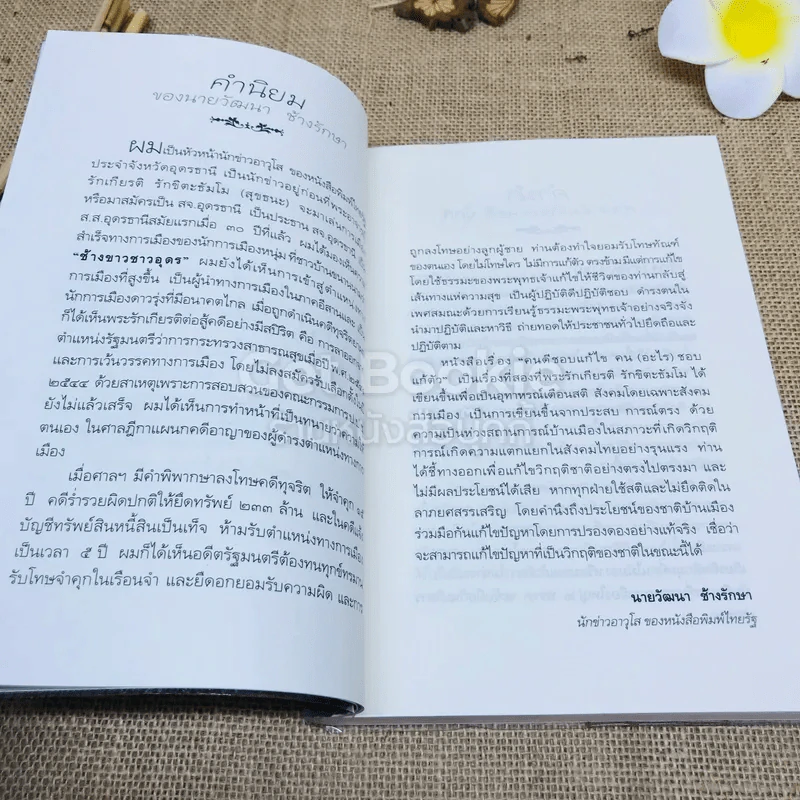 คำนิยม
ของนายวัฒนา ช้างรักษา
ผมเป็นหัวหน้านักข่าวอาวุโส ของหนังสือพิมพ์ไทยรัฐ
ประจำจังหวัดอุดรธานี เป็นนักข่าวอยู่ก่อนที่พระอาจารย์
รักเกียรติ รักขิตะธัมโม (สุขธนะ) จะมาเล่นการเมือง
หรือมาสมัครเป็น สจ.อุดรธานี เป็นประธาน สจ.อุดรธานี
ส.ส.อุดรธานีสมัยแรกเมื่อ ๓๐ ปีที่แล้ว ผมได้มองเห็น
สำเร็จทางการเมืองของนักการเมืองหนุ่ม ที่ชาวบ้านขนานนาม
"ช้างขาวชาวอุดร" ผมยังได้เห็นการเข้าสู่ตำแหน่งทาง
การเมืองที่สูงขึ้น เป็นผู้นำทางการเมืองในภาคอีสานและ
นักการเมืองดาวรุ่งที่มีอนาคตไกล เมื่อถูกดำเนินคดีทุจริต
ก็ได้เห็นพระรักเกียรติต่อสู้คดีอย่างมีสปิริต คือ การลาออก
ตำแหน่งรัฐมนตรีว่าการกระทรวงสาธารณสุขเมื่อปี พ.ศ.
และการเว้นวรรคทางการเมือง โดยไม่ลงสมัครรับเลือกตั้ง
๒๕๔๔ ด้วยสาเหตุเพราะการสอบสวนของคณะกรรมการ
ยังไม่แล้วเสร็จ ผมได้เห็นการทำหน้าที่เป็นทนายว่าความ
ตนเอง ในศาลฎีกาแผนกคดีอาญาของผู้ดำรงตำแหน่งทางการ
เมือง
เมื่อศาลฯ มีคำพิพากษาลงโทษคดีทุจริต ให้จำคุก ๑๕
ปี คดีร่ำรวยผิดปกติให้ยึดทรัพย์ ๒๓๓ ล้าน และในคดีแจ้ง
บัญชีทรัพย์สินหนี้สินเป็นเท็จ ห้ามรับตำแหน่งทางการเมือง
เป็นเวลา ๕ ปี ผมก็ได้เห็นอดีตรัฐมนตรีต้องทนทุกข์ทรมาน
รับโทษจำคุกในเรือนจำ และยืดอกยอมรับความผิด และการ
ถูกลงโทษอย่างลูกผู้ชาย ท่านต้องทำใจยอมรับโทษทัณฑ์
ของตนเอง โดยไม่โทษใคร ไม่มีการแก้ตัว ตรงข้าม มีแต่การแก้ไข
โดยใช้ธรรมะของพระพุทธเจ้าแก้ไขให้ชีวิตของท่านกลับสู่
เส้นทางแห่งความสุข เป็นผู้ปฏิบัติดีปฏิบัติชอบ ดำรงตนใน
เพศสมณะด้วยการเรียนรู้ธรรมะพระพุทธเจ้าอย่างจริงจัง
นำมาปฏิบัติและหาวิธี ถ่ายทอดให้ประชาชนทั่วไปยึดถือและ
ปฏิบัติตาม
หนังสือเรื่อง "คนดีชอบแก้ไข คน (อะไร) ชอบ
แก้ตัว" เป็นเรื่องที่สองที่พระรักเกียรติ รักขิตะธัมโม ได้
เขียนขึ้นเพื่อเป็นอุทาหรณ์เตือนสติ สังคมโดยเฉพาะสังคม
การเมือง เป็นการเขียนขึ้นจากประสบ การณ์ตรง ด้วย
ความเป็นห่วงสถานการณ์บ้านเมืองในสภาวะที่เกิดวิกฤติ
การณ์เกิดความแตกแยกในสังคมไทยอย่างรุนแรง ท่าน
ได้ชี้ทางออกเพื่อแก้ไขวิกฤติชาติอย่างตรงไปตรงมา และ
ไม่มีผลประโยชน์ได้เสีย หากทุกฝ่ายใช้สติและไม่ยึดติดใน
ลาภยศสรรเสริญ โดยคำนึงถึงประโยชน์ของชาติบ้านเมือง
ร่วมมือกันแก้ไขปัญหาโดยการปรองดองอย่างแท้จริง เชื่อว่า
จะสามารถแก้ไขปัญหาที่เป็นวิกฤติของชาติในขณะนี้ได้
นายวัฒนา ช้างรักษา
นักข่าวอาวุโส ของหนังสือพิมพ์ไทยรัฐ